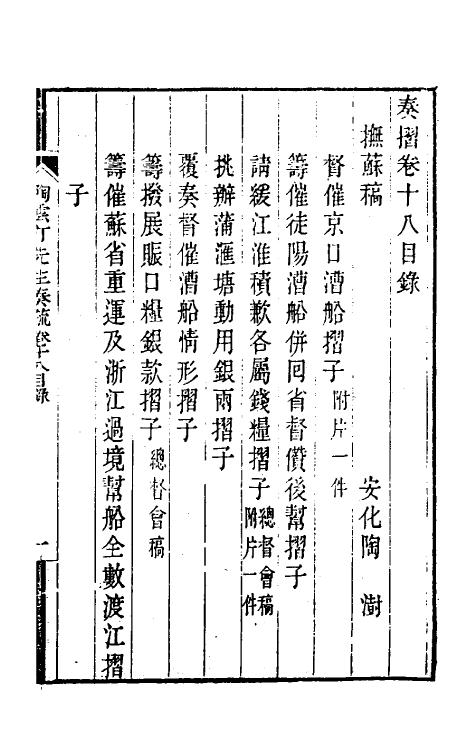 奏摺卷十八目錄
撫蘇稿　安化陶　澍
督催京口漕船摺子附片一件
籌催徒陽漕船併回省督儹後幫摺子
請緩江淮積歉各屬錢糧摺子總督會稿附片一件
挑辦蒲滙塘動用銀兩摺子
覆奏督催漕船情形摺子
籌撥展賑口糧銀款摺子總督會稿
籌催蘇省重運及浙江過境幫船全數渡江摺
子
陶雲汀先生奏疏卷十八目錄　一